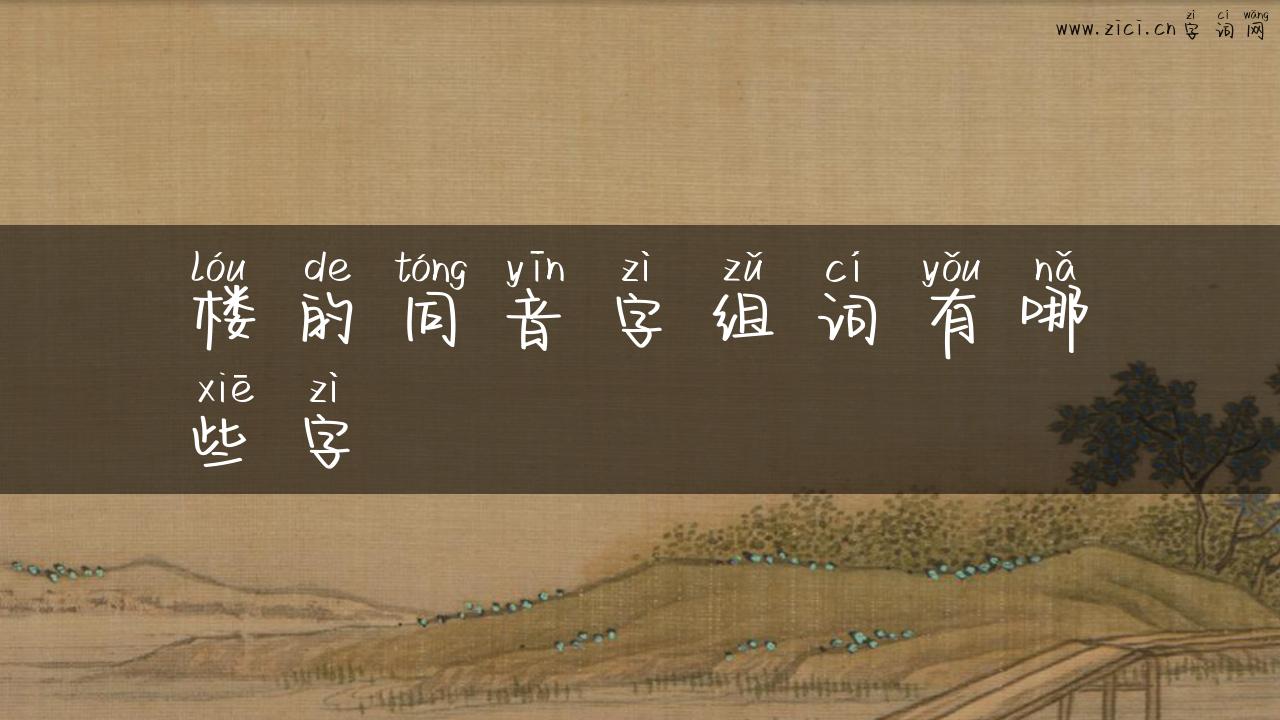 zì cí wǎng
www.zici.cn字词网
lóu de tóng yīn zì zǔ cí yǒu nǎ
楼的同音字组词有哪
xiē zì
些字